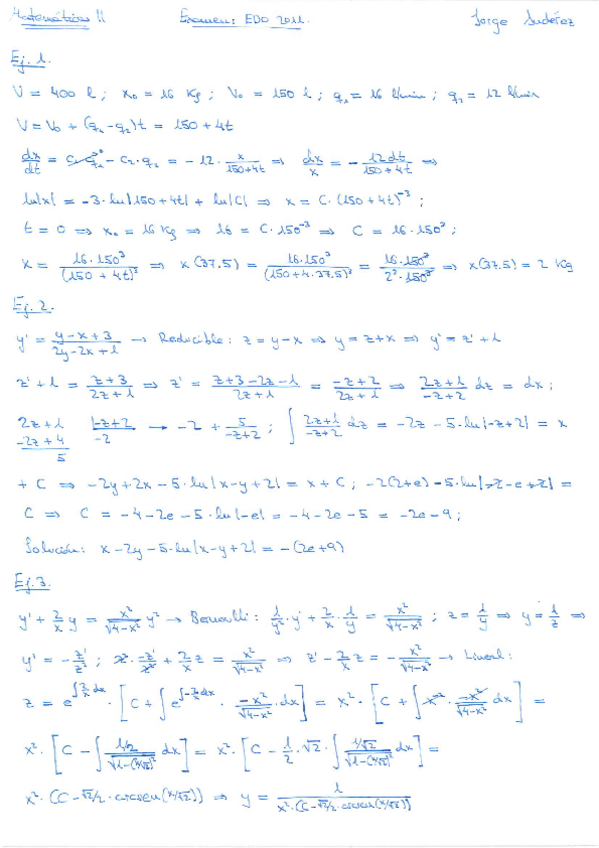 Matemáticas II Examen: EDO 2011. Jorge
Ej. 1.
V = 400 l; x₀ = 16 Kg; V₀ = 150 l; q₁ = 16 l/min; q₂ = 12 l/min
V = V₀ + (q₁ - q₂)t = 150 + 4t
dx/dt = c₁·q₁ - c₂·q₂ = -12 · x/(150+4t) ⇒ dx/x = - 12dt/(150+4t) ⇒
ln|x| = -3·ln|150+4t| + ln|C| ⇒ x = C·(150+4t)⁻³;
t = 0 ⇒ x₀ = 16 Kg ⇒ 16 = C·150⁻³ ⇒ C = 16·150³;
x = 16·150³/(150+4t)³ ⇒ x(37.5) = 16·150³/(150+4·37.5)³ = 16·150³/2³·150³ ⇒ x(37.5) = 2 Kg
Ej. 2.
y' = (y-x+3)/(2y-2x+1) → Reducible: z = y-x ⇒ y = z+x ⇒ y' = z'+1
z'+1 = (z+3)/(2z+1) ⇒ z' = (z+3-2z-1)/(2z+1) = (-z+2)/(2z+1) ⇒ (2z+1)/(-z+2) dz = dx;
2z+1 |-z+2 → -2 + 5/(-z+2); ∫ (2z+1)/(-z+2) dz = -2z - 5·ln|-z+2| = x
-2z+4 -2
5
+ C ⇒ -2y+2x-5·ln|x-y+2| = x + C; -2(2+e) - 5·ln|-2-e+2| =
C ⇒ C = -4-2e-5·ln|-e| = -4-2e-5 = -2e-9;
Solución: x-2y-5·ln|x-y+2| = -(2e+9)
Ej. 3.
y' + 2/x y = x²/√(4-x²) y² → Bernoulli: 1/y²·y' + 2/x · 1/y = x²/√(4-x²); z = 1/y ⇒ y = 1/z ⇒
y' = -z'/z²; z²·-z'/z² + 2/x z = x²/√(4-x²) ⇒ z' - 2/x z = -x²/√(4-x²) → Lineal:
z = e^∫2/x dx · [C + ∫e^∫-2/x dx · -x²/√(4-x²) · dx] = x² · [C + ∫x⁻² · -x²/√(4-x²) dx] =
x² · [C - ∫ 1/2/√(1-(x/√2)²) dx] = x² · [C - 1/2 · √2 · ∫ 1/√2/√(1-(x/√2)²) dx] =
x² · (C - √2/2 · arcsen(x/√2)) ⇒ y = 1/(x²·(C - √2/2 · arcsen(x/√2)))